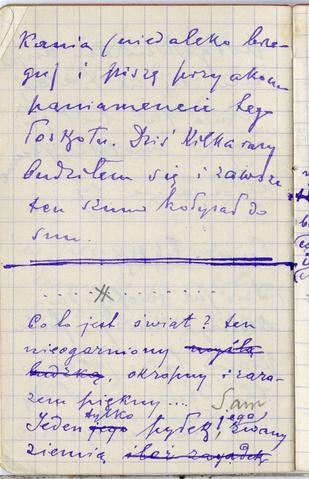 kania (niedaleko brze-
gu) i piszę przy akom
paniamencie tego
łoskotu. Dziś kilka razy
budziłem się i zawsze
ten szum kołysał do
snu.
Co to jest świat? ten
nieogarniony myślą
ludzką, okropny i zara-
zem piękny....
Sam
tylko jego
Jeden jego pyłek, zwany
ziemią